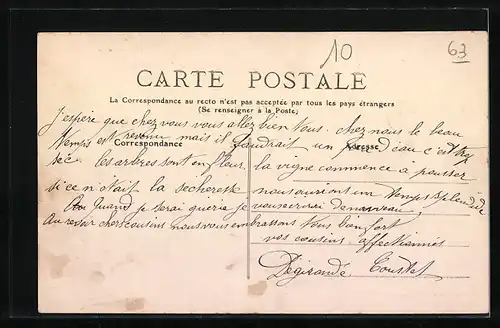 10
63
CARTE POSTALE
La Correspondance au recto n'est pas acceptée par tous les pays étrangers
(Se renseigner à la Poste)
J'espère que chez vous vous allez bien tous. chez nous le beau
temps est revenu mais il faudrait un peu d'eau c'est très
Correspondance
Adresse
sec. les arbres sont en fleur. la vigne commence à pousser
si ce n'était la sécheresse nous aurions un temps splendide
Quand je serai guérie je vous écrirai de nouveau,
Au revoir chers cousins nous vous embrassons tous bien fort
vos cousins affectionnés